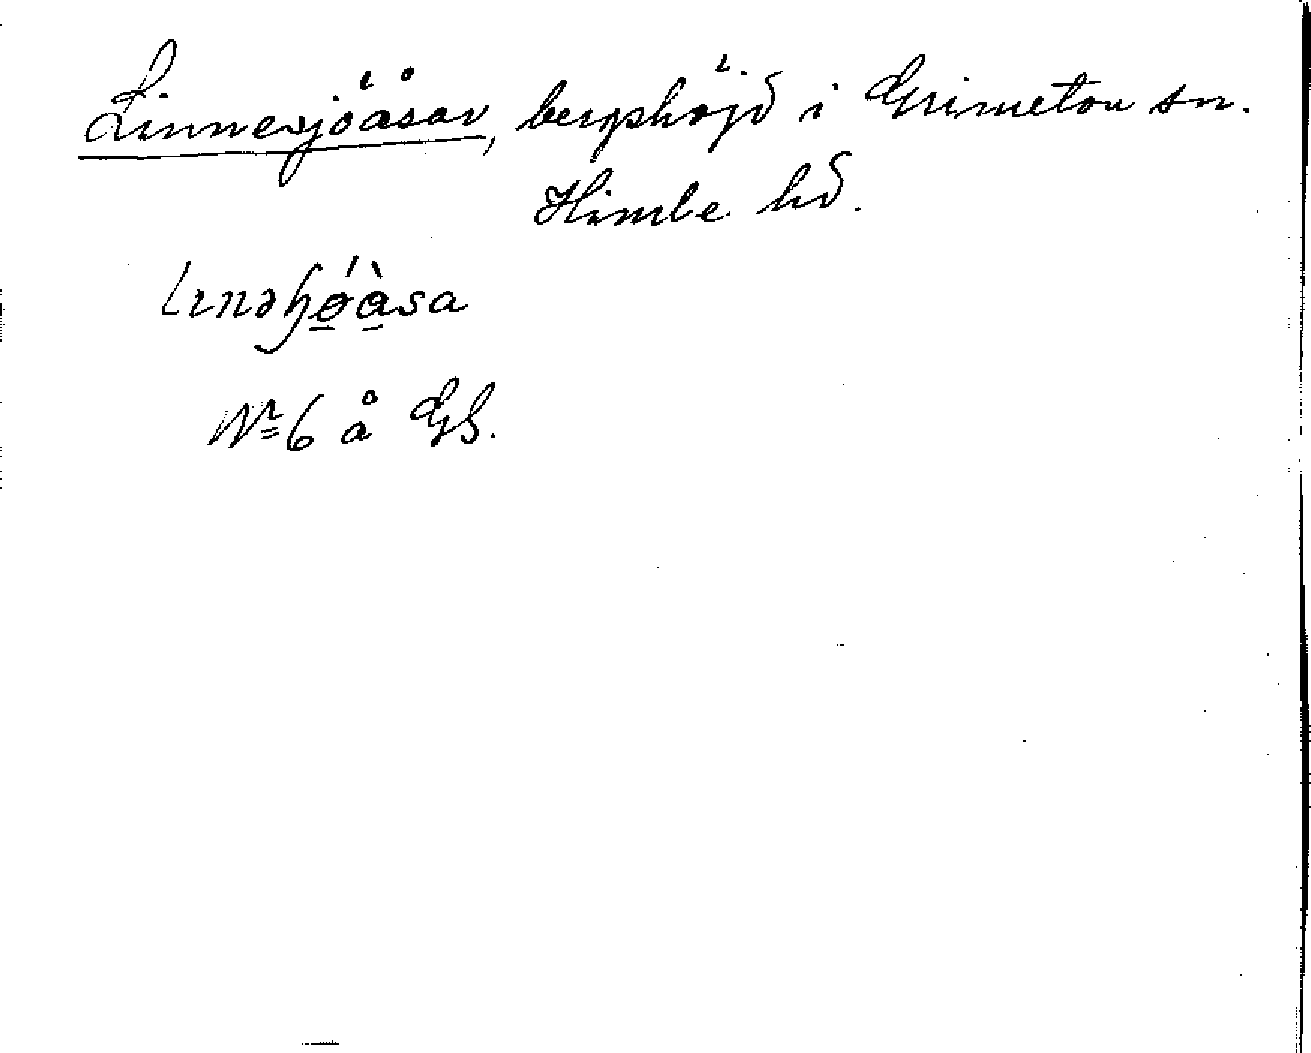 Linnesjöåsar, bergshöjd i Grimeton sn.
Himle hd.
lınəɧǿàsa
№ 6 å GS.